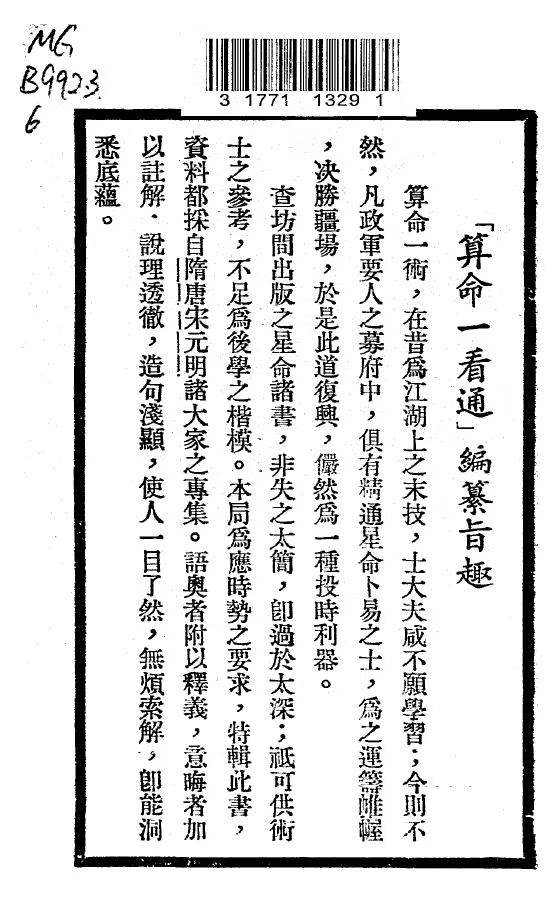 MG
B992.3
6
3 1771 1329 1
「算命一看通」編纂旨趣
算命一術，在昔爲江湖上之末技，士大夫咸不願學習；今則不
然，凡政軍要人之幕府中，俱有精通星命卜易之士，爲之運籌帷幄
，决勝疆場，於是此道復興，儼然爲一種投時利器。
查坊間出版之星命諸書，非失之太簡，卽過於太深；祗可供術
士之參考，不足爲後學之楷模。本局爲應時勢之要求，特輯此書，
資料都採自隋唐宋元明諸大家之專集。語奧者附以釋義，意晦者加
以註解．說理透徹，造句淺顯，使人一目了然，無煩索解，卽能洞
悉底蘊。